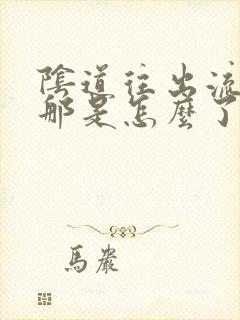 陰道往出流
那是怎麼了
馬嚴